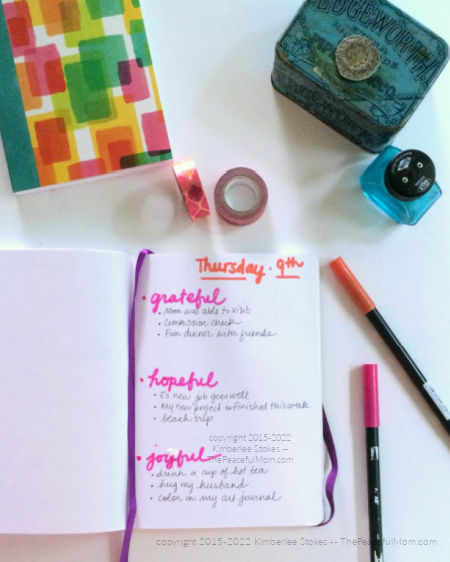 EDGEWORTH
Thursday · 9th
• grateful
• Mom was able to visit
• Commission check
• Fun dinner with friends
• hopeful
• E's new job goes well
• My new project is finished this week
• beach trip
• joyful
copyright 2015-2022
Kimberlee Stokes --
ThePeacefulMom.com
• drink a cup of hot tea
• hug my husband
• color in my art journal
copyright 2015-2022 Kimberlee Stokes -- ThePeacefulMom.com